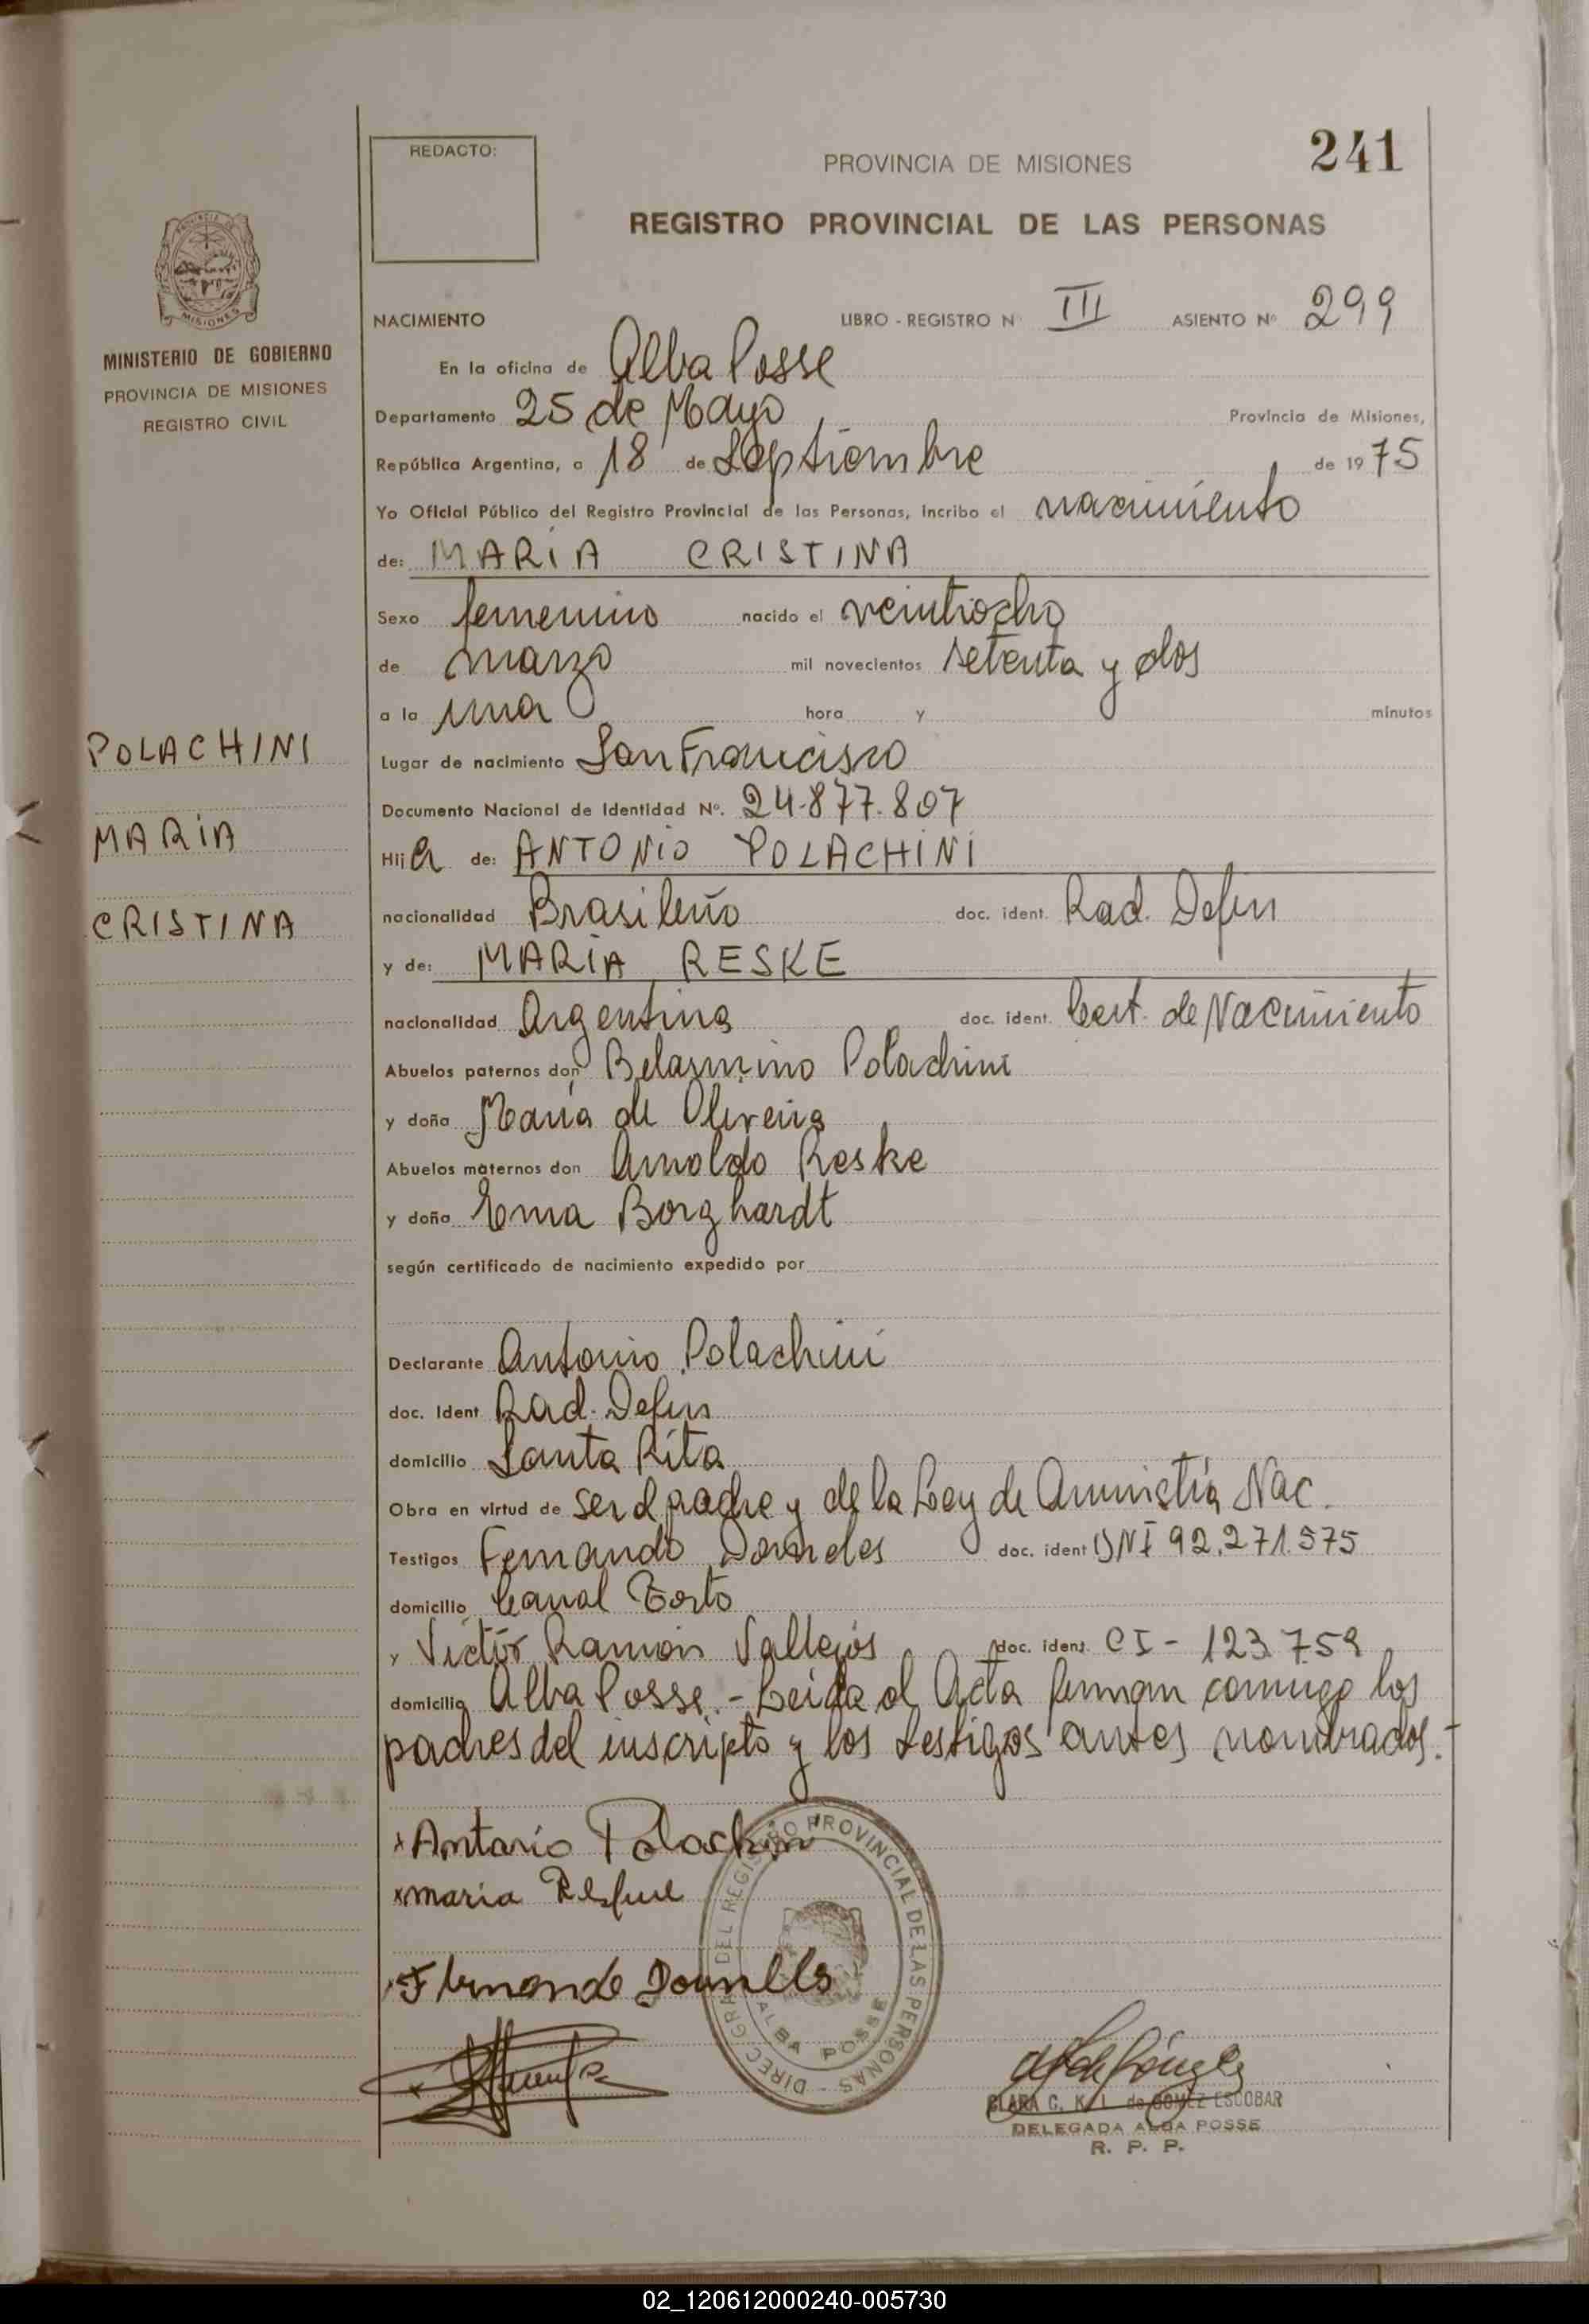 REDACTO:
PROVINCIA DE MISIONES
241
REGISTRO PROVINCIAL DE LAS PERSONAS
MISIONES
MINISTERIO DE GOBIERNO
PROVINCIA DE MISIONES
REGISTRO CIVIL
NACIMIENTO LIBRO - REGISTRO Nº III ASIENTO Nº 299
En la oficina de Alba Posse
Departamento 25 de Mayo Provincia de Misiones,
República Argentina, a 18 de Septiembre de 1975
Yo Oficial Público del Registro Provincial de las Personas, incribo el nacimiento
de: MARIA CRISTINA
Sexo femenino nacido el veintiocho
de marzo mil novecientos setenta y dos
a la una hora y minutos
POLACHINI
Lugar de nacimiento San Francisco
Documento Nacional de Identidad Nº. 24.877.807
MARIA
Hija de: ANTONIO POLACHINI
nacionalidad Brasileño doc. ident. Rad. Defin
CRISTINA
y de: MARIA RESKE
nacionalidad Argentina doc. ident. Cert. de Nacimiento
Abuelos paternos don Belarmino Polachini
y doña María de Oliveira
Abuelos maternos don Arnoldo Reske
y doña Ema Borghardt
según certificado de nacimiento expedido por
Declarante Antonio Polachini
doc. Ident Rad. Defin
domicilio Santa Rita
Obra en virtud de ser el padre y de la Ley de Amnistía Nac.
Testigos Fernando Dorneles doc. ident DNI 92.271.575
domicilio Canal Torto
y Victor Ramón Vallejos doc. ident. CI - 123.759
domicilio Alba Posse.- Leída el Acta firman conmigo los
padres del inscripto y los testigos antes nombrados.-
x Antonio Polachin
x maria Reske
DIREC. GRAL. DEL REGISTRO PROVINCIAL DE LAS PERSONAS - ALBA POSSE
x Fernande Dornelles
CLARA C. K. L. de GOMEZ ESCOBAR
DELEGADA ALBA POSSE
R. P. P.
02_120612000240-005730